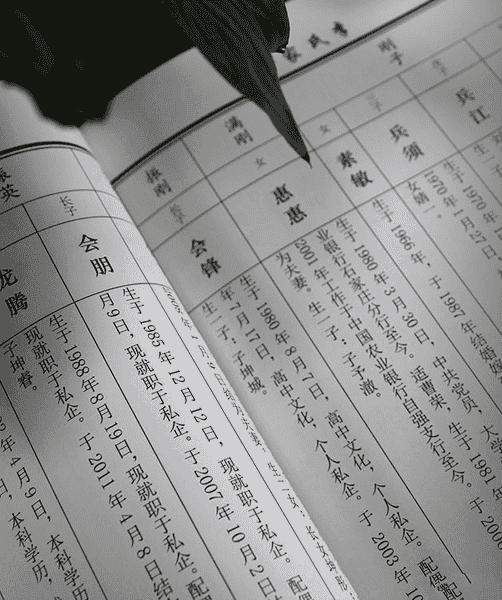 李氏家
刚子
满刚
振刚
女
女
长子
兵江
兵须
素敏
惠惠
会锋
1970年1月27日
生于1966年，于1987年结婚
生于1980年3月30日，中共党员，大学
业银行石家庄分行至今。适曹荣，生于1981
2001年工作于中国农业银行自强支行至今。
为夫妻。生一子：子澈。
生于1980年8月7日，高中文化，个人私企。配偶
年7月17日，高中文化，个人私企。于2003年10
生一子：子坤城。
振英
长子
会朋
龙腾
生于1985年12月12日，现就职于私企。配
月9日，现就职于私企。于2007年10月2日
生于1988年8月19日，现就职于私企。配
现就职于私企。于2011年4月8日结
子坤睿。
年4月9日，本科学历，
日，本科学历，